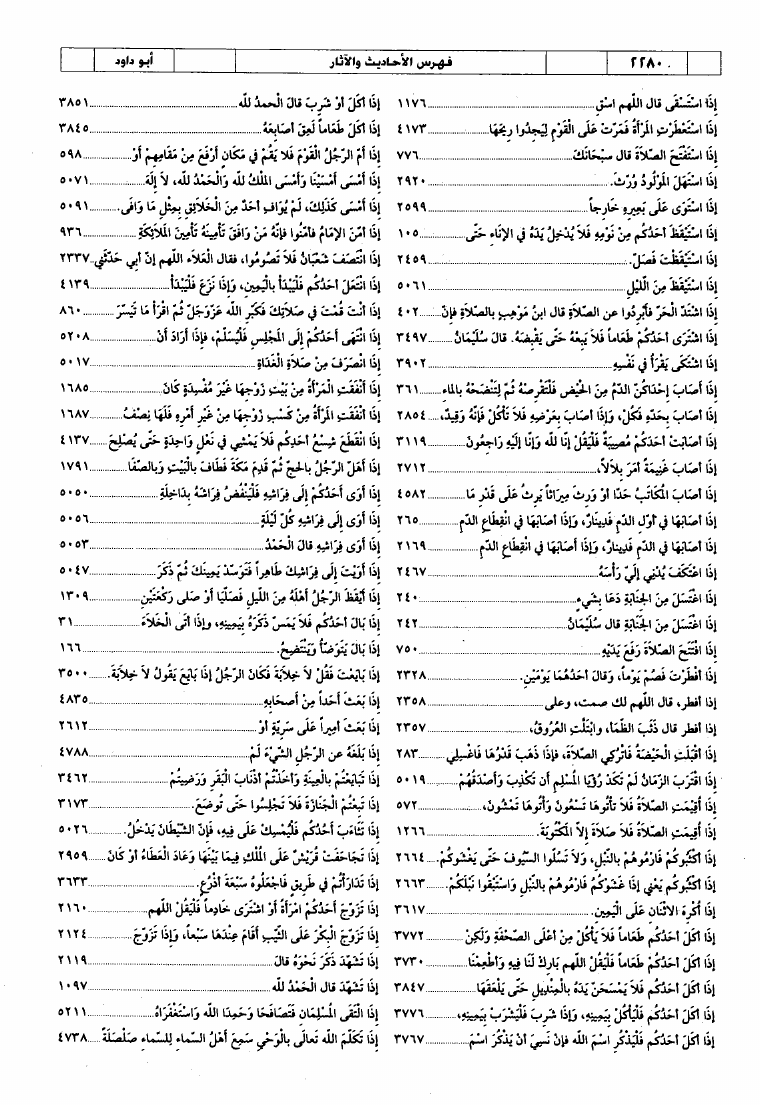 ٢٢٨٠ فهرس الأحاديث والآثار أبو داود
إذَا اسْتَسْقَى قال اللّهم اسْقِ ١١٧٦
إذَا اسْتَعْطَرَتِ المَرْأةُ فَمَرَّتْ عَلَى الْقَوْمِ لِيَجِدُوا رِيحَهَا ٤١٧٣
إذَا اسْتَفْتَحَ الصَّلاَةَ قال سبْحَانَكَ ٧٧٦
إذَا اسْتَهَلّ المَوْلُودُ وُرِّثَ. ٢٩٢٠
إذَا اسْتَوَى عَلَى بَعِيرِهِ خَارِجاً ٢٥٩٩
إذَا اسْتَيْقَظَ أحَدُكُم مِنْ نَوْمِهِ فَلاَ يُدْخِلُ يَدَهُ في الإنَاءِ حَتَّى ١٠٥
إذَا اسْتَيْقَظْتَ فَصَلّ. ٢٤٥٩
إذَا اسْتَيْقَظَ مِنَ اللّيْلِ ٥٠٦١
إذَا اشْتَدّ الْحَرّ فَأبْرِدُوا عن الصّلاَةِ قال ابنُ مَوْهِبٍ بالصّلاَةِ فإنّ ٤٠٢
إذَا اشْتَرَى أحَدُكُم طَعَاماً فَلاَ يَبِعْهُ حَتَّى يَقْبِضَهُ. قالَ سُلَيْمَانُ ٣٤٩٧
إذَا اشْتَكَى يَقْرَأُ في نَفْسِهِ ٣٩٠٢
إذَا أصَابَ إحْدَاكُنّ الدّمُ مِنَ الْحَيْضِ فَلْتَقْرِصْهُ ثُمّ لِتَنْضَحْهُ بالماءِ ٣٦١
إذَا أصَابَ بِحَدّهِ فَكُلْ، وَإذَا أصَابَ بِعَرْضِهِ فَلاَ تَأْكُلْ فَإنّهُ وَقِيذٌ، ٢٨٥٤
إذَا أصَابَتْ أحَدَكُمْ مُصِيبَةٌ فَلْيَقُلْ إنّا لله وَإنّا إلَيْهِ رَاجِعُونَ ٣١١٩
إذَا أصَابَ غَنِيمَةً أمَرَ بِلاَلاً، ٢٧١٢
إذَا أصَابَ المُكَاتَبُ حَدّا أوْ وَرِثَ مِيرَاثاً يَرِثُ عَلَى قَدْرِ مَا ٤٥٨٢
إذَا أصَابَهَا في أوّلِ الدّمِ فَدِينَارٌ، وَإذَا أصَابَهَا في انْقِطَاعِ الدّمِ ٢٦٥
إذَا أصَابَهَا في الدّمِ فَدِينَارٌ، وَإذَا أصَابَهَا في انْقِطَاعِ الدّمِ ٢١٦٩
إذَا اعْتَكَفَ يُدْنِي إلَيّ رَأْسَهُ ٢٤٦٧
إذَا اغْتَسَلَ مِنَ الْجَنَابَةِ دَعَا بِشَيْءٍ ٢٤٠
إذَا اغْتَسَلَ مِنَ الْجَنَابَةِ قال سُلَيْمَانُ ٢٤٢
إذَا افْتَتَحَ الصّلاَةَ رَفَعَ يَدَيْهِ ٧٥٠
إذَا أفْطَرْتَ فَصُمْ يَوْماً، وَقالَ أحَدُهُمَا يَوْمَيْنِ. ٢٣٢٨
إذَا أفطر، قال اللّهم لك صمت، وعلى ٢٣٥٨
إذَا أفطر قال ذَهَبَ الظّمَأُ، وابْتَلّتِ العُرُوقُ، ٢٣٥٧
إذَا أقْبَلَتِ الْحَيْضَةُ فَاتْرُكِي الصّلاَةَ، فإذَا ذَهَبَ قَدْرُهَا فَاغْسِلِي ٢٨٣
إذَا اقْتَرَبَ الزّمَانُ لَمْ تَكَدْ رُؤْيَا المُسْلِمِ أنْ تَكْذِبَ وَأصْدَقُهُمْ ٥٠١٩
إذَا أُقِيمَتِ الصّلاَةُ فَلاَ تَأتُوهَا تَسْعَوْنَ وَأتُوهَا تَمْشُونَ، ٥٧٢
إذَا أُقِيمَتِ الصّلاَةُ فَلاَ صَلاَةَ إلاّ المَكْتُوبَةُ. ١٢٦٦
إذَا أكْثَبُوكُمْ فَارْمُوهُمْ بالنّبْلِ، وَلاَ تَسُلّوا السّيُوفَ حَتَّى يَغْشَوكُمْ. ٢٦٦٤
إذَا أكْثَبُوكُم يَعْنِي إذَا غَشَوْكُمْ فَارْمُوهُمْ بالنّبْلِ وَاسْتَبْقُوا نَبْلَكُمْ. ٢٦٦٣
إذَا أُكْرِهَ الاثْنَانِ عَلَى الْيَمِينِ. ٣٦١٧
إذَا أكَلَ أحَدُكُم طَعَاماً فَلاَ يَأكُلْ مِنْ أعْلَى الصّحْفَةِ وَلَكِنْ ٣٧٧٢
إذَا أكَلَ أحَدُكُم طَعَاماً فَلْيَقُلْ اللّهم بَارِكْ لَنَا فِيهِ وَأطْعِمْنَا ٣٧٣٠
إذَا أكَلَ أحَدُكُمْ فَلاَ يَمْسَحَنّ يَدَهُ بالْمِنْدِيلِ حَتّى يَلْعَقَهَا ٣٨٤٧
إذَا أكَلَ أحَدُكُمْ فَلْيَأْكُلْ بِيَمِينِهِ، وَإذَا شَرِبَ فَلْيَشْرَبْ بِيَمِينِهِ، ٣٧٧٦
إذَا أكَلَ أحَدُكُم فَلْيَذْكُرِ اسْمَ الله فإنْ نَسِيَ أنْ يَذْكُرَ اسْمَ ٣٧٦٧
إذَا أكَلَ أوْ شَرِبَ قالَ الْحَمدُ لله ٣٨٥١
إذَا أكَلَ طَعَاماً لَعِقَ أصَابِعَهُ ٣٨٤٥
إذَا أمّ الرّجُلُ الْقَوْمَ فَلاَ يَقُمْ في مَكَانٍ أرْفَعَ مِنْ مَقَامِهِمْ أوْ ٥٩٨
إذَا أمْسَى أمْسَيْنَا وَأمْسَى المُلْكُ لله وَالْحَمْدُ لله، لاَ إلَهَ ٥٠٧١
إذَا أمْسَى كَذَلِكَ، لَمْ يُوَافِ أحَدٌ مِنَ الْخَلاَئِقِ بِمِثْلِ مَا وَافَى. ٥٠٩١
إذَا أمّنَ الإمَامُ فأمّنُوا فإنّهُ مَنْ وَافَقَ تَأْمِينُهُ تَأْمِينَ المَلاَئِكَةِ ٩٣٦
إذَا انْتَصَفَ شَعْبَانُ فَلاَ تَصُومُوا، فقال العَلاَء اللّهم إنّ أبي حَدّثَنِي ٢٣٣٧
إذَا انْتَعَلَ أحَدُكُم فَلْيَبْدَأْ بالْيَمِينِ، وَإذَا نَزَعَ فَلْيَبْدَأْ ٤١٣٩
إذَا أنْتَ قُمْتَ في صَلاَتِكَ فَكَبّرِ الله عَزّوَجَلّ ثُمّ اقْرَأْ مَا تَيَسّرَ ٨٦٠
إذَا انْتَهَى أحَدُكُمْ إلَى المَجْلِسِ فَلْيُسَلّمْ، فإذَا أرَادَ أنْ ٥٢٠٨
إذَا انْصَرَفَ مِنْ صَلاَةِ الْغَدَاةِ ٥٠١٧
إذَا أنْفَقَتِ المَرْأةُ مِنْ بَيْتِ زَوْجِهَا غَيْرَ مُفْسِدَةٍ كَانَ ١٦٨٥
إذَا أنْفَقَتِ المَرْأةُ مِنْ كَسْبِ زَوْجِهَا مِنْ غَيْرِ أمْرِهِ فَلَهَا نِصْفُ ١٦٨٧
إذَا انْقَطَعَ شِسْعُ أحَدِكُم فَلاَ يَمْشِي في نَعْلٍ وَاحِدَةٍ حَتّى يُصْلِحَ ٤١٣٧
إذَا أهَلّ الرّجُلُ بالحجّ ثُمّ قَدِمَ مَكّةَ فَطَافَ بالْبَيْتِ وبالصّفَا ١٧٩١
إذَا أوَى أحَدُكُمْ إلَى فِرَاشِهِ فَلْيَنْفُضْ فِرَاشَهُ بِدَاخِلَةِ ٥٠٥٠
إذَا أوَى إلَى فِرَاشِهِ كُلّ لَيْلَةٍ ٥٠٥٦
إذَا أوَى فِرَاشِهِ قالَ الْحَمْدُ ٥٠٥٣
إذَا أوَيْتَ إلَى فِرَاشِكَ طَاهِراً فَتَوَسّدْ يَمِينَكَ ثُمّ ذَكَرَ ٥٠٤٧
إذَا أيْقَظَ الرّجُلُ أهْلَهُ مِنَ اللّيلِ فَصَلّيَا أوْ صَلى رَكْعَتَيْنِ ١٣٠٩
إذَا بَالَ أحَدُكُمْ فَلاَ يَمَسّ ذَكَرَهُ بِيَمِينِهِ، وإذَا أتَى الْخَلاَءَ ٣١
إذَا بَالَ يَتَوَضّأُ وَيَنْتَضِحُ. ١٦٦
إذَا بَايَعْتَ فَقُلْ لاَ خِلاَبَةَ فَكَانَ الرّجُلُ إذَا بَايَعَ يَقُولُ لاَ خِلاَبَةَ. ٣٥٠٠
إذَا بَعَثَ أحَداً مِنْ أصْحَابِهِ ٤٨٣٥
إذَا بَعَثَ أمِيراً عَلَى سَرِيّةٍ أوْ ٢٦١٢
إذَا بَلَغَهُ عن الرّجُلِ الشّيْءَ لَمْ ٤٧٨٨
إذَا تَبَايَعْتُمْ بالْعِينَةِ وَأخَذْتُمْ أذْنَابَ الْبَقَرِ وَرَضِيتُمْ ٣٤٦٢
إذَا تَبِعْتُمُ الْجَنَازَةَ فَلاَ تَجْلِسُوا حَتّى تُوضَعَ. ٣١٧٣
إذَا تَثَاءَبَ أحَدُكُم فَلْيُمْسِكْ عَلَى فِيهِ، فإنّ الشّيْطَانَ يَدْخُلُ. ٥٠٢٦
إذَا تَجَاحَفَتْ قُرَيْشٌ عَلَى المُلْكِ فِيمَا بَيْنَهَا وَعَادَ الْعَطَاءُ أوْ كَانَ ٢٩٥٩
إذَا تَدَارَأْتُمْ في طَرِيقٍ فَاجْعَلُوهُ سَبْعَةَ أذْرُعٍ. ٣٦٣٣
إذَا تَزَوّجَ أحَدُكُم امْرَأةً أوْ اشْتَرَى خَادِماً فَلْيَقُلْ اللّهم ٢١٦٠
إذَا تَزَوّجَ الْبِكْرَ عَلَى الثّيّبِ أقَامَ عِنْدَهَا سَبْعاً، وَإذَا تَزَوّجَ ٢١٢٤
إذَا تَشَهّدَ ذَكَرَ نَحْوَهُ قالَ ٢١١٩
إذَا تَشَهّدَ قال الْحَمْدُ لله ١٠٩٧
إذَا الْتَقَى المُسْلِمَانِ فَتَصَافَحَا وَحَمِدَا الله وَاسْتَغْفَرَاهُ ٥٢١١
إذَا تَكَلّمَ الله تَعَالَى بالْوَحْيِ سَمِعَ أهْلُ السّماءِ لِلسّماءِ صَلْصَلَةً ٤٧٣٨